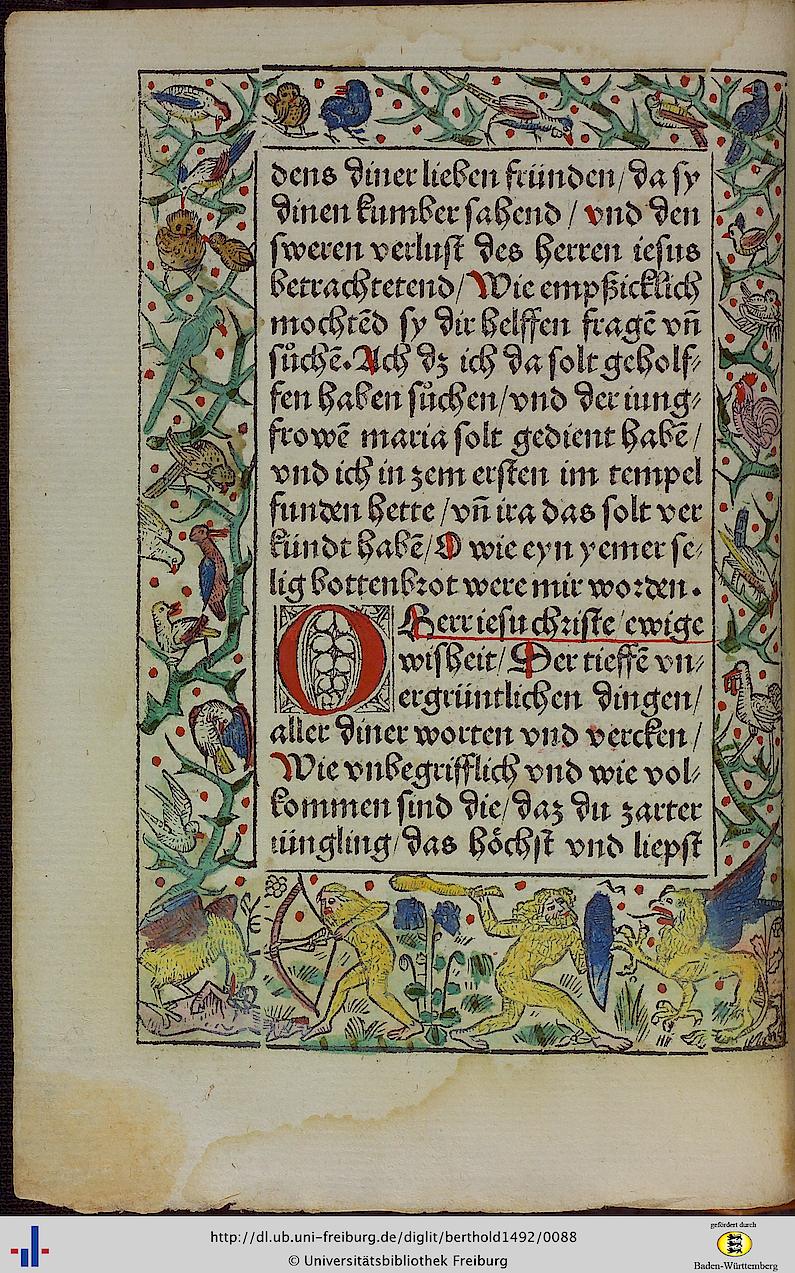 dens diner lieben fründen/ da sy
dinen kumber sahend / vnd den
sweren verlust des herren iesus
betrachtetend/ Wie empßicklich
mochtēd sy dir helffen fragē vn̄
sůchē. Ach dz ich da solt geholf⸗
fen haben sůchen/ vnd der iung⸗
frowē maria solt gedient habē /
vnd ich in zem ersten im tempel
funden hette / vn̄ ira das solt ver
kündt habē/ O wie eyn yemer se⸗
lig bottenbrot were mir worden.
O Herr iesu christe/ ewige
wisheit/ Der tieffē vn⸗
ergrüntlichen dingen/
aller diner worten vnd vercken /
Wie vnbegrifflich vnd wie vol⸗
kommen sind die/ daz du zarter
iüngling/ das höchst vnd liepst
http://dl.ub.uni-freiburg.de/diglit/berthold1492/0088
© Universitätsbibliothek Freiburg
gefördert durch
Baden-Württemberg